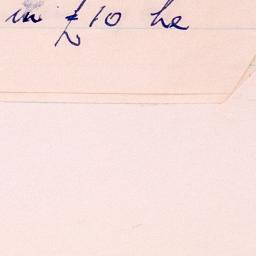 in £10 he